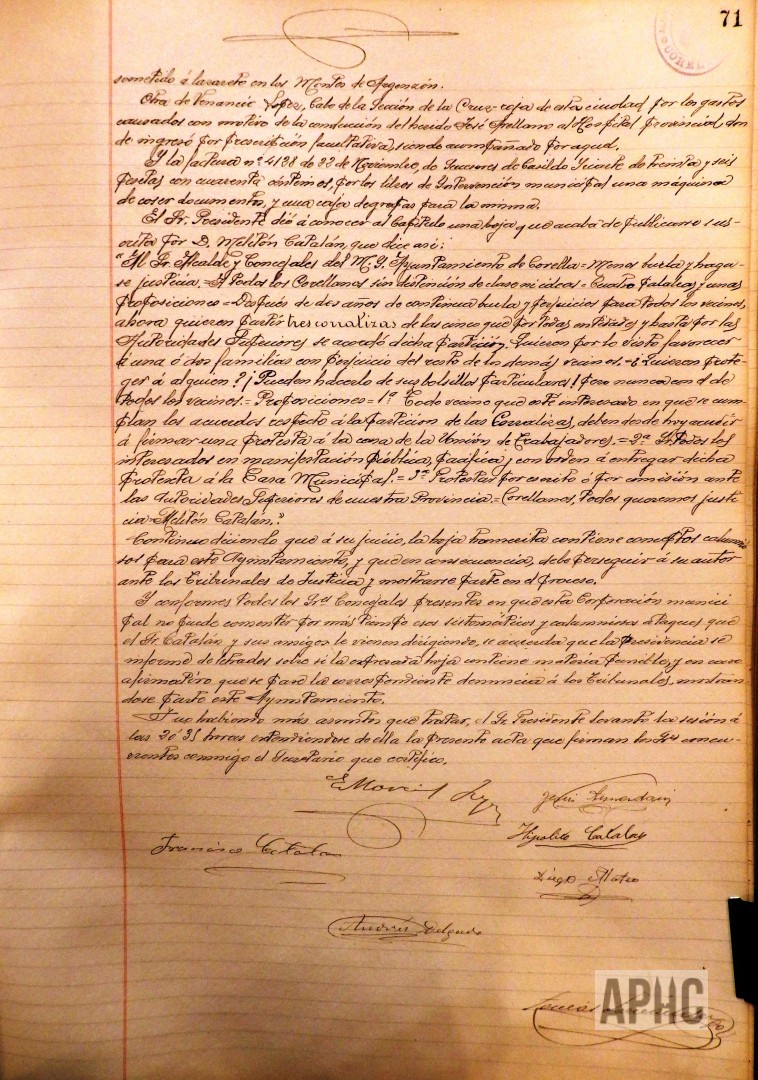 71
sometido á lazareto en los Montes de Argenzón.
Otra de Venancio López, Cabo de la Sección de la Cruz-roja de esta ciudad por los gastos
causados con motivo de la conducción del herido José Arellano al Hospital provincial, don
de ingresó por prescripción facultativa, siendo acompañado por aquel.
Y la factura nº 4138 de 22 de Noviembre, de Sucesores de Casildo Iriarte de treinta y seis
pesetas con cuarenta céntimos, por los libros de Intervención municipal una máquina
de coser documentos, y una caja de grapas para la misma.
El Sr. Presidente dió á conocer al Capítulo una hoja que acaba de publicarse sus-
crita por D. Melitón Catalán, que dice asi:
"Al Sr. Alcalde y Concejales del M. Y. Ayuntamiento de Corella = Menos burla y haga-
se justicia = A todos los Corellanos sin distención de clase ni ideas = Cuatro palabras y unas
proposiciones = Después de dos años de continua burla y perjuicios para todos los vecinos,
ahora quieren partir tres corralizas de las cinco que por todas mitades y hasta por las
Autoridades Superiores se acordó dicha partición. Quieren por lo visto favorecer
á una ó dos familias con perjuicio del resto de los demás vecinos. = ¿Quieren prote-
ger á alguien? ¡Pueden hacerlo de sus bolsillos particulares! pero nunca con el de
todos los vecinos. = Proposiciones = 1ª Todo vecino que esté interesado en que se cum-
plan los acuerdos respecto á la partición de las Corralizas, deben desde hoy acudir
á firmar una protesta á la casa de la Unión de Trabajadores. = 2ª Ir todos los
interesados en manifestación pública, pacífica y con orden á entregar dicha
protesta á la Casa Municipal. = 3ª Protestar por escrito ó por comisión ante
las Autoridades Superiores de nuestra Provincia. = Corellanos, todos queremos justi
cia = Melitón Catalán."
Continuó diciendo que á su juicio, la hoja transcrita contiene conceptos calumnio
sos para este Ayuntamiento, y que en consecuencia, debe perseguir á su autor
ante los Tribunales de Justicia y mostrarse parte en el proceso.
Y conformes todos los Sres Concejales presentes en que esta Corporación munici
pal no puede consentir por más tiempo esos sistemáticos y calumniosos ataques que
el Sr. Catalán y sus amigos le vienen dirigiendo, se acuerda que la Presidencia se
informe de letrados sobre si la expresada hoja contiene materia punible, y en caso
afirmativo que se pase la correspondiente denuncia á los Tribunales, mostrán-
dose parte este Ayuntamiento.
Y no habiendo más asuntos que tratar, el Sr. Presidente levantó la sesión á
las 20 y 35 horas extendiéndose de ella la presente acta que firman los Sres concu-
rrentes conmigo el Secretario que certifico.
Hipolito Catalan
Francisco Catalan
Diego Mateo
Andrés Delgado
APHC